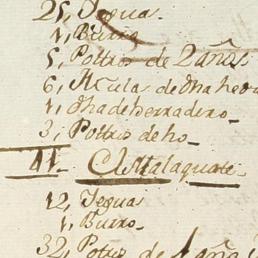 25, Yegua.
1, Burro
5, Pottros de 2 años
6, Mula de Dha her
1, Dha de herradero.
3, Pottros de ho
44. Malaguate.
12, Yegua
1, Burro.
32, Pottros de 1 año